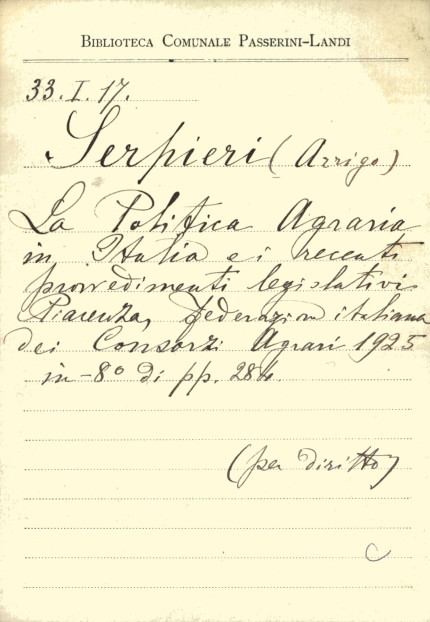 BIBLIOTECA COMUNALE PASSERINI-LANDI
33.I.17.
Serpieri (Arrigo)
La Politica Agraria
in Italia e i recenti
provvedimenti legislativi
Piacenza, Federazione italiana
dei Consorzi Agrari 1925
in-8° di pp. 284.
(per diritto)
C